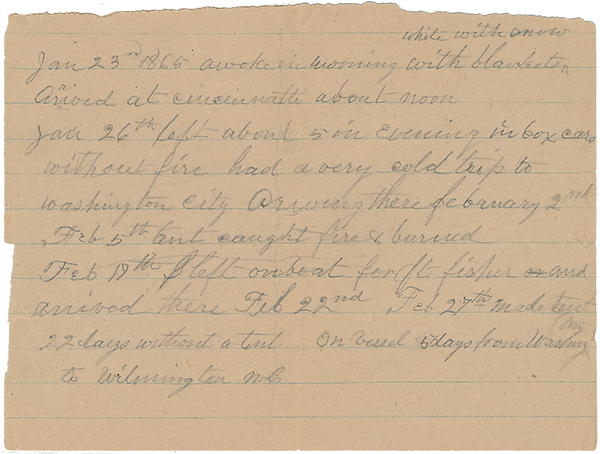 white with snow
Jan 23rd 1865 awoke in morning with blankets
Arived at cincinnatti about noon
Jan 26th left about 5 in Evening in box cars
without fire had a very cold trip to
Washington City Ariving there february 2nd
Feb 5th tent caught fire & burned
Feb 17th left on boat for ft fisher and
arrived there Feb 22nd Feb 27th made tent
22 days without a tent On vessel 5 days from Washing
ton
to Wilmington N.C